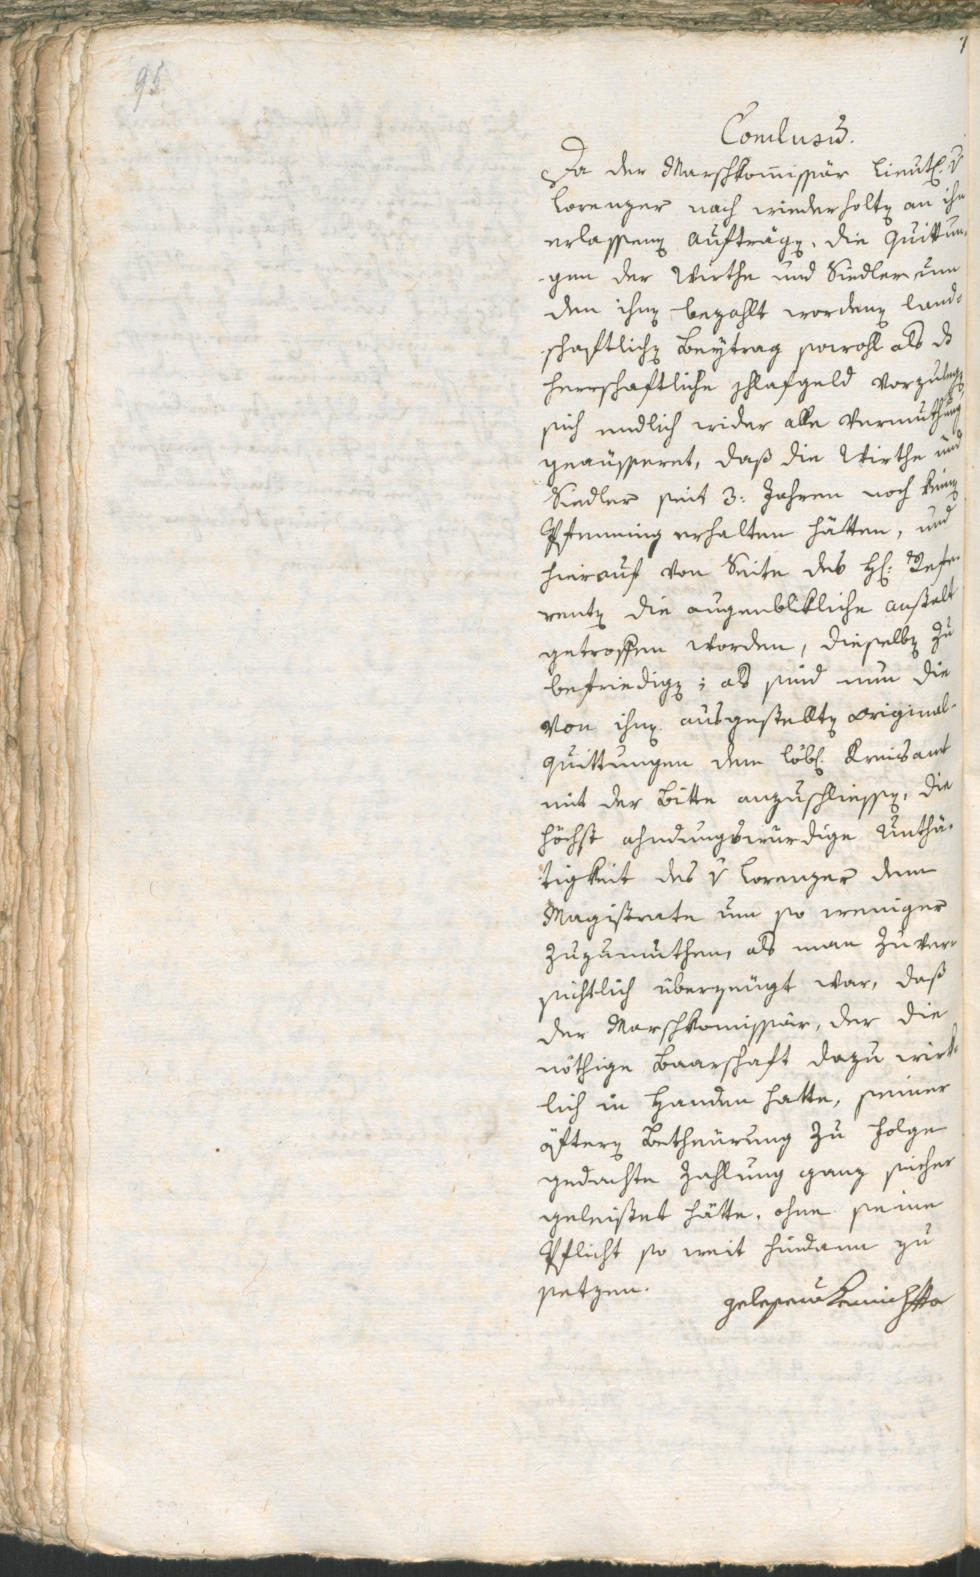 95
Conclusum.
Da der Marschkommissär Lieut. v
Lorenzer nach wiederholten an ihn
erlassenen Aufträgen, die Quittun-
gen der Wirthe und Siedler um
den ihnen bezahlt wordenen land-
schaftlichen Beÿtrag sowohl als
herrschaftliche Schlafgeld vorzulegen
sich endlich wider alle Vermuthung
geäusseret, daß die Wirthe und
Siedler seit 3: Jahren noch keinen
Pfenning erhalten hätten, und
hierauf von Seite des H: Refe-
renten die augenblikliche Anstalt
getroffen worden, dieselben zu
befriedigen; als sind nun die
von ihnen ausgestellten Original-
Quittungen dem löbl. Kreisamt
mit der Bitte anzuschliessen, die
höchst ahndungswürdige Unthä-
tigkeit des v Lorenzer dem
Magistrate um so weniger
zuzumuthen, als man zuver-
sichtlich überzeugt war, daß
der Marschkomissär, der die
nöthige Baarschaft dazu wirk-
lich in Handen hatte, seiner
öfteren Betheürung zu Folge
gedachte Zahlung ganz sicher
geleistet hätte, ohne seine
Pflicht so weit hindann zu
setzen.
gelesen